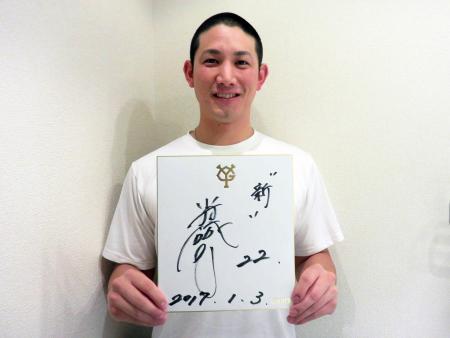 YG
"新"
22.
2017. 1. 3.